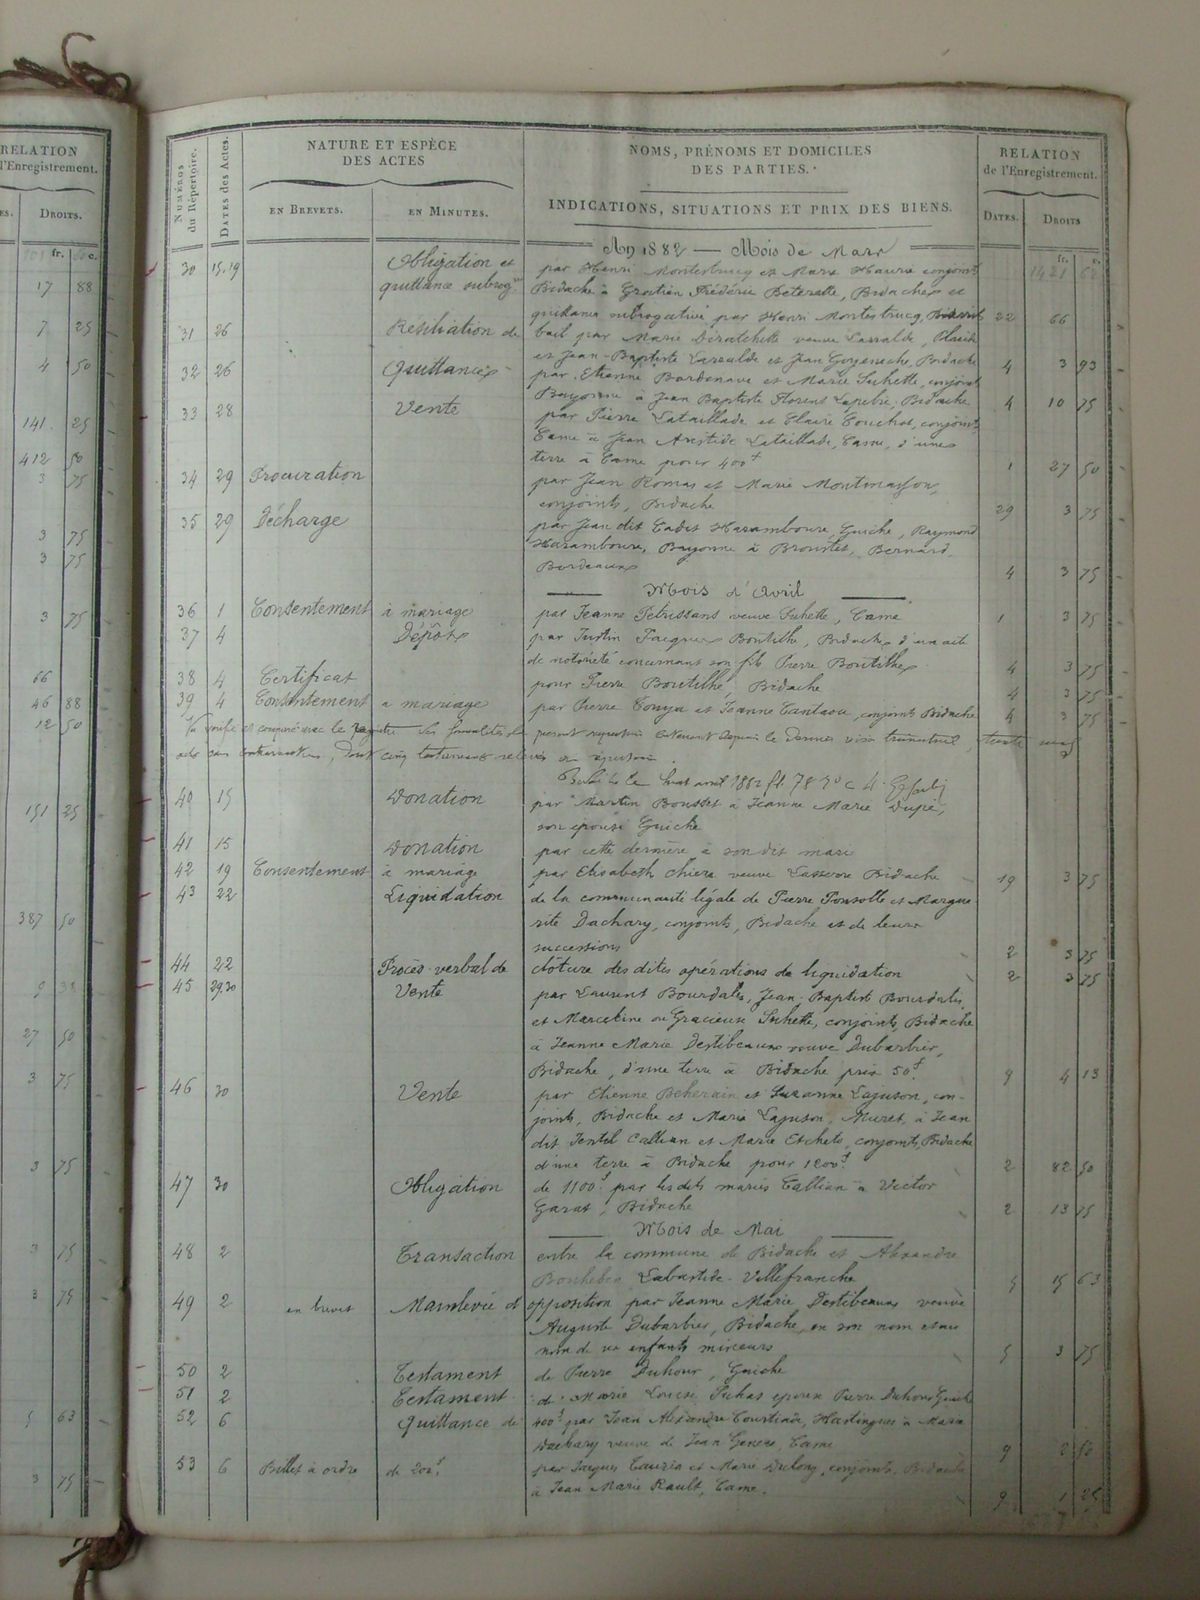 RELATION
l'Enregistrement.
Droits.
fr. c.
17 88
7 25
4 50
141 25
412 50
3 75
3 75
3 75
3 75
66
46 88
12 50
151 25
387 50
9 38
27 50
3 75
3 75
3 75
3 75
5 63
3 75
Numéros du Répertoire.
Dates des Actes.
NATURE ET ESPÈCE
DES ACTES
en Brevets.
en Minutes.
NOMS, PRÉNOMS ET DOMICILES
DES PARTIES.
INDICATIONS, SITUATIONS ET PRIX DES BIENS.
RELATION
de l'Enregistrement.
Dates.
Droits
fr. c.
An 1882 — Mois de Mars
30 15.19 Obligation et par Henri Montestrucq et Marie Hauria conjoints
quittance subrog. Bidache à Gratien Frédéric Beterette, Bidache et
quittance subrogative par Henri Montestrucq, 22 66
31 26 Résiliation de bail par Marie Diratchette veuve Larralde,
et Jean-Baptiste Larralde et Jean Goyeneche, Bidache 4 3 93
32 26 Quittance par Etienne Bordenave et Marie Suhette, conjoints
Bayonne à Jean Baptiste Florent Bidache 4 10 75
33 28 Vente par Pierre Lataillade et Claire conjoints,
Came à Jean Aristide Lataillade, Came, d'une
terre à Came pour 400f 1 27 50
34 29 Procuration par Jean Romas et Marie Montmasson,
conjoints, Bidache 29 3 75
35 29 Décharge par Jean dit Cadet Haramboure, Guiche, Raymond
Haramboure, Bayonne à Broustet, Bernard,
Bordeaux 4 3 75
Mois d'Avril
36 1 Consentement à mariage par Jeanne Petrissans veuve Suhette, Came 1 3 75
37 4 Dépôt par Justin Jacques Boutilhe, Bidache d'un acte
de notoriété concernant son fils Pierre Boutilhe 4 3 75
38 4 Certificat pour Pierre Boutilhe, Bidache 4 3 75
39 4 Consentement à mariage par Pierre et Jeanne conjoints Bidache 4 3 75
le dernier visa trimestriel, trente neuf
actes dont cinq testaments
avril 1882 fl. 78
40 15 Donation par Martin Bousset à Jeanne Marie Dupié,
son épouse Guiche
41 15 Donation par cette dernière à son dit mari
42 19 Consentement à mariage par Elisabeth veuve Lasserre Bidache 19 3 75
43 22 Liquidation de la communauté légale de Pierre Ponsolle et Margue
rite Dachary, conjoints, Bidache et de leurs
successions 2 3 75
44 22 Procès-verbal de clôture desdites opérations de liquidation 2 3 75
45 29.30 Vente par Laurent Bourdalès, Jean-Baptiste Bourdalès
et Marceline ou Gracieuse Suhette, conjoints, Bidache
à Jeanne Marie Destibeaux veuve Dubarbier,
Bidache, d'une terre à Bidache prix 50f 9 4 13
46 30 Vente par Etienne Beherain et Suzanne Lajuson, con-
joints, Bidache et Marie Lajuson, Muret, à Jean
dit Gentil Callian et Marie Etcheto, conjoints, Bidache
d'une terre à Bidache pour 1200f. 2 82 50
47 30 Obligation de 1100f. par lesdits mariés Callian à Victor
Garat, Bidache 2 13 75
Mois de Mai
48 2 Transaction entre la commune de Bidache et Alexandre
Bonheben Labastide-Villefranche 5 15 63
49 2 en brevet Mainlevée d'opposition par Jeanne Marie Destibeaux veuve
Auguste Dubarbier, Bidache, en son nom et au
nom de ses enfants mineurs 5 3 75
50 2 Testament de Pierre Duhour, Guiche
51 2 Testament de Marie Louise épouse Pierre Duhour Guiche
52 6 Quittance de 400f par Jean Alexandre Courtiade, Hastingues à Marie
Dachary veuve de Jean Came 9 2 50
53 6 Billet à ordre de 202f. par Jacques Tauzia et Marie Duclong, conjoints, Bidache
à Jean Marie Rault, Came. 9 1 25